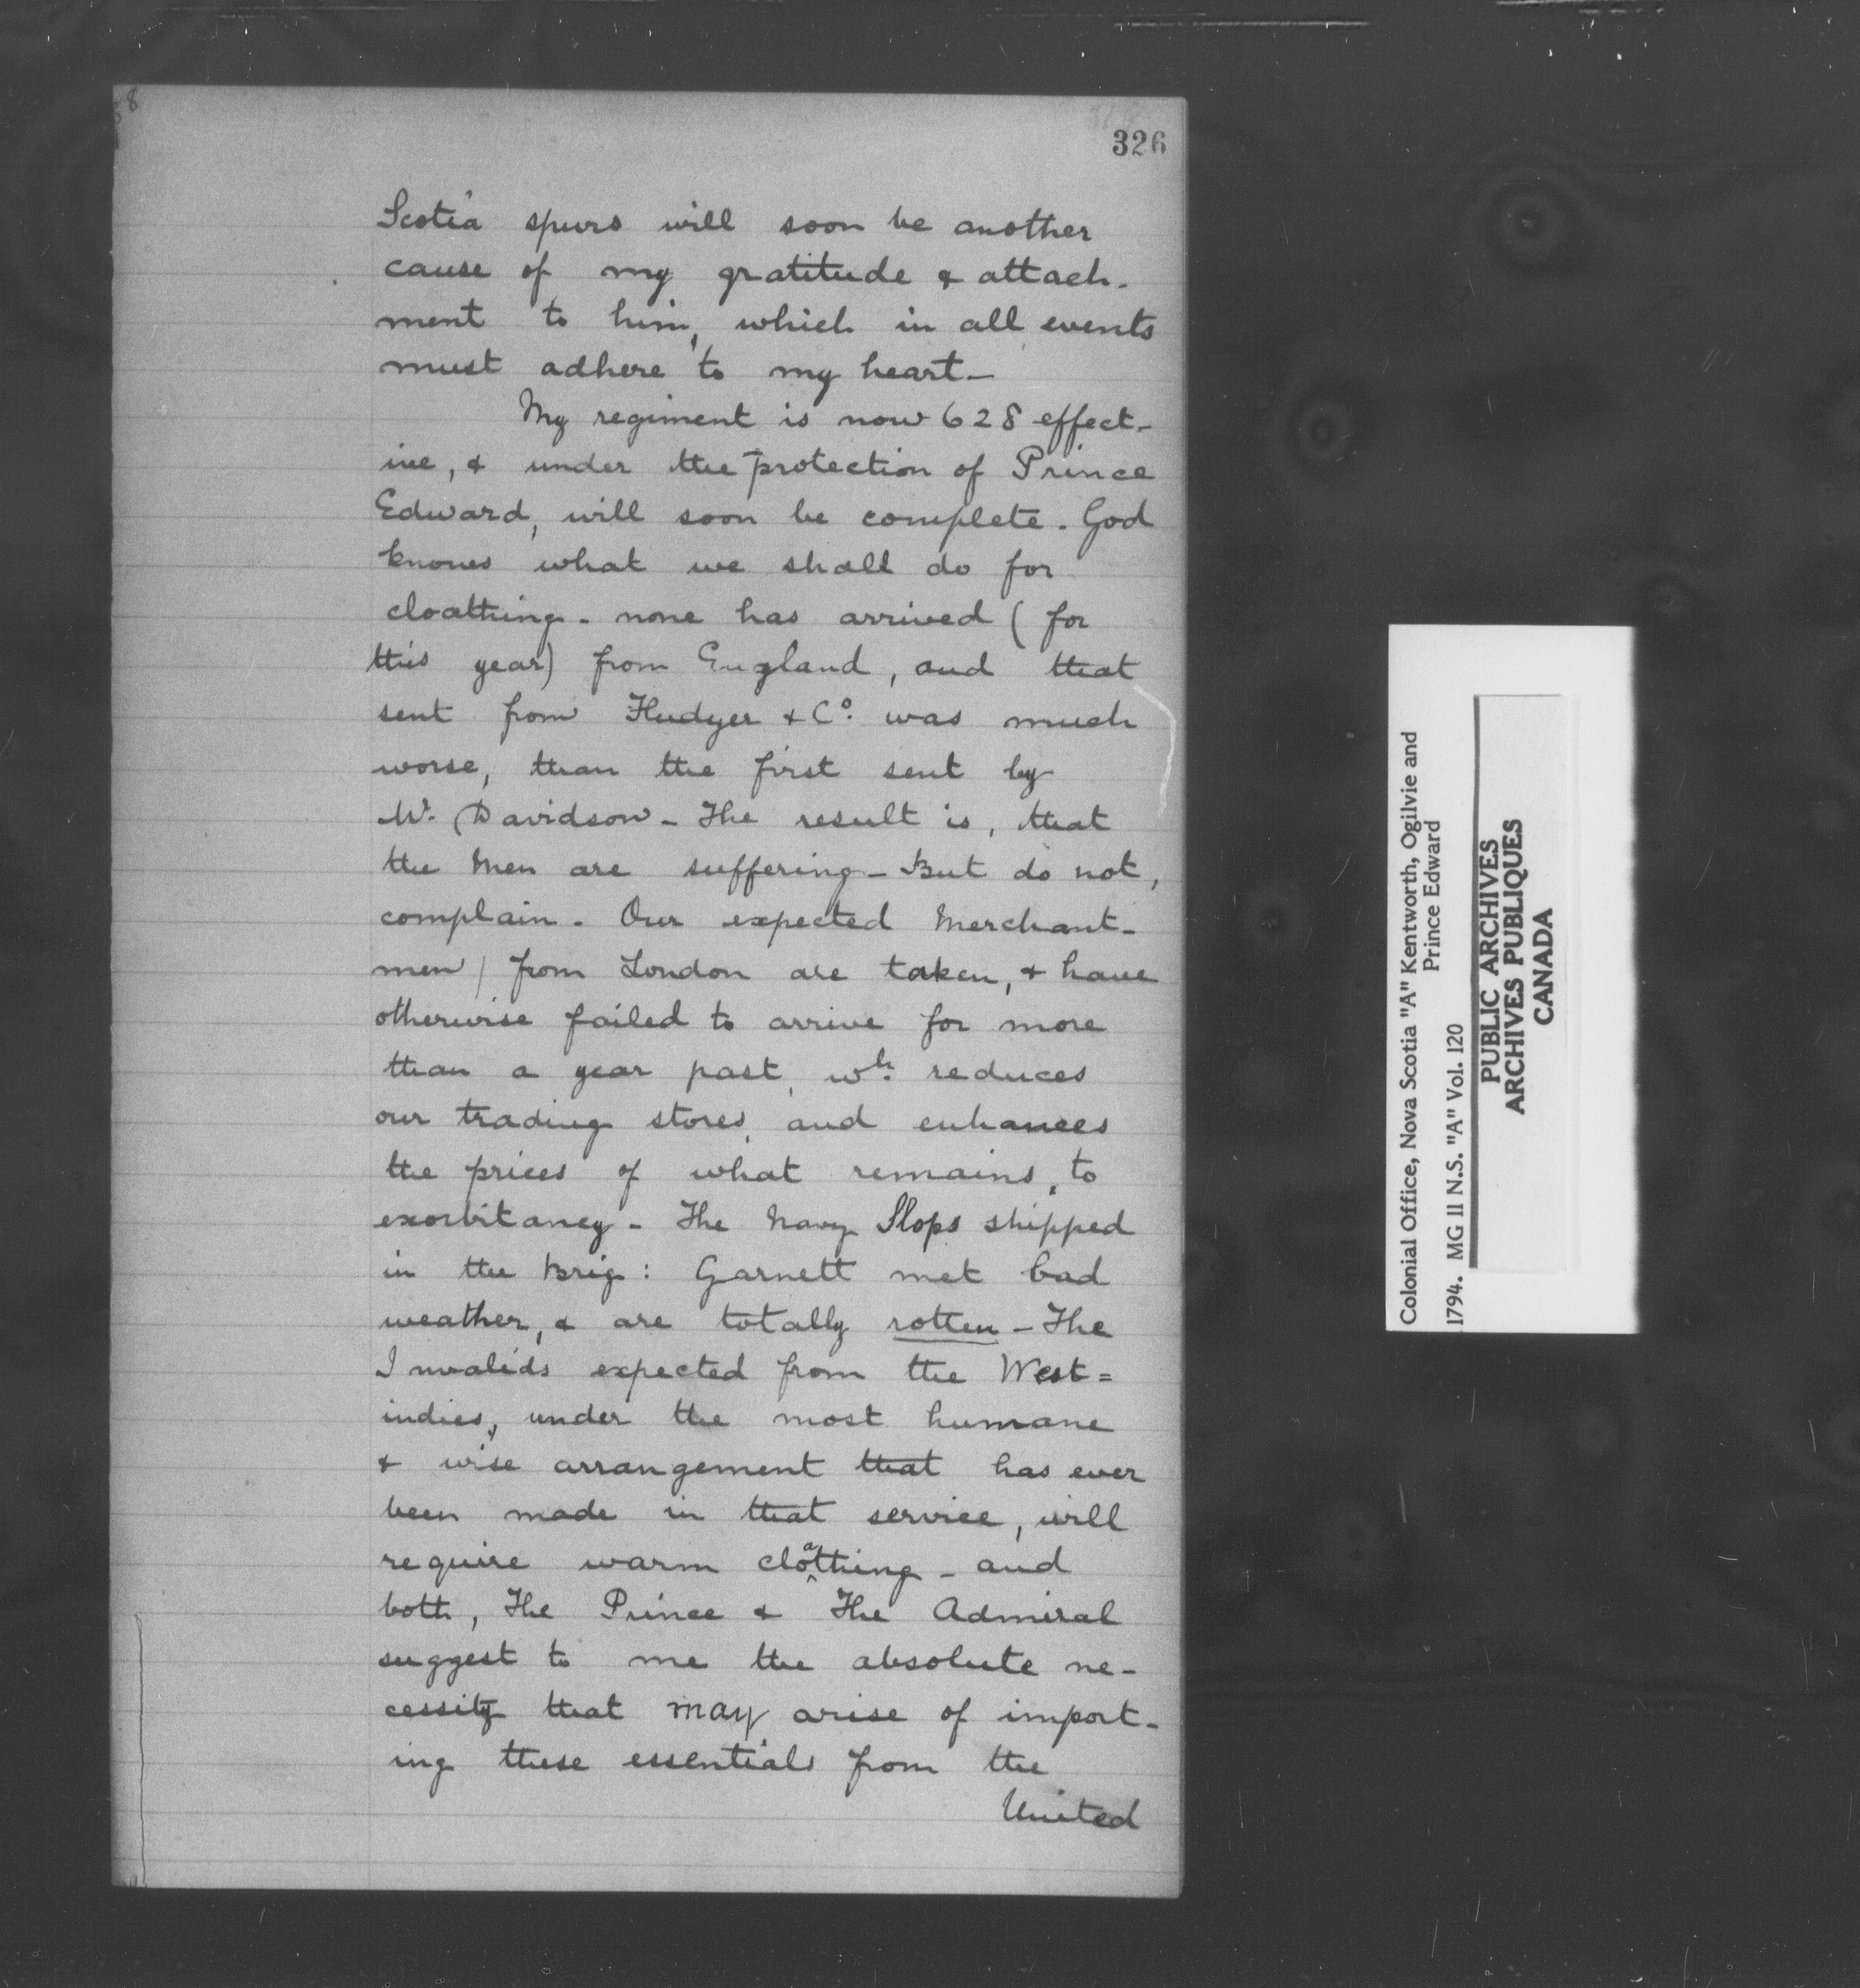 326
Scotia spurs will soon be another
cause of my gratitude & attach-
ment to him, which in all events
must adhere to my heart—
My regiment is now 628 effect-
ive, & under the protection of Prince
Edward, will soon be complete. God
knows what we shall do for
cloathing - none has arrived (for
this year) from England, and that
sent from Hudyer & Co. was much
worse, than the first sent by
Mr. Davidson - The result is, that
the Men are suffering - But do not,
complain. Our expected Merchant-
men / from London are taken, & have
otherwise failed to arrive for more
than a year past, wh. reduces
our trading stores, and enhances
the prices of what remains, to
exorbitancy - The Navy Slops shipped
in the Brig: Garnett met bad
weather, & are totally rotten - The
Invalids expected from the West=
indies, under the most humane
& wise arrangement that has ever
been made in that service, will
require warm cloathing - and
both, The Prince & The Admiral
suggest to me the absolute ne-
cessity that may arise of import-
ing these essentials from the
United
Colonial Office, Nova Scotia "A" Kentworth, Ogilvie and
Prince Edward
1794. MG 11 N.S. "A" Vol. 120
PUBLIC ARCHIVES
ARCHIVES PUBLIQUES
CANADA